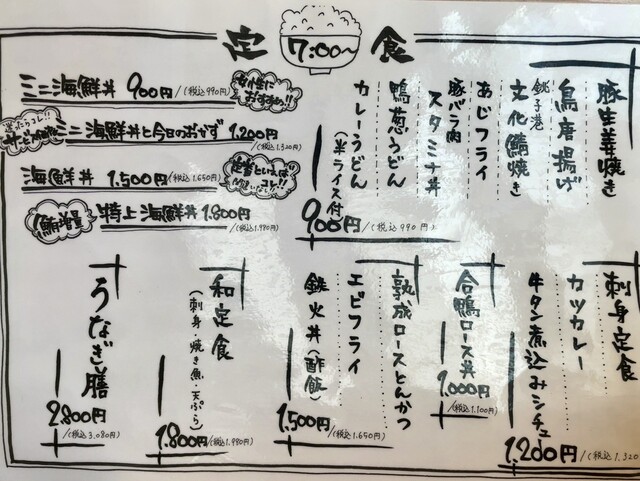 定 7:00〜 食
ミニ海鮮丼 900円/(税込990円)
女性におすすめ!!
迷ったらコレ!!
ミニ海鮮丼と今日のおかず 1,200円/(税込1,320円)
海鮮丼 1,500円(税込1,650円)
定食といえば
コレ!!
鮪増量 特上海鮮丼 1,800円/(税込1,980円)
豚生姜焼き
鳥唐揚げ
銚子港 文化鯖焼き
あじフライ
豚バラ肉スタミナ丼
鴨葱うどん
カレーうどん(半ライス付)
900円/(税込990円)
刺身定食
カツカレー
牛タン煮込みシチュー
1,200円/(税込1,320
合鴨ロース丼
1,000円/(税込1,100円)
熟成ロースとんかつ
エビフライ
鉄火丼(酢飯)
1,500円/(税込1,650円)
和定食(刺身・焼き魚・天ぷら)
1,800円/(税込1,980円)
うなぎ膳
2,800円/(税込3,080円)